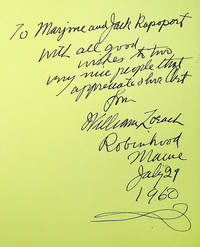 To Marjorie and Jack Rapoport
With all good
wishes to two
very nice people that
appreciate & love Art
from
William Zorach
Robinhood
Maine
July 29
1960